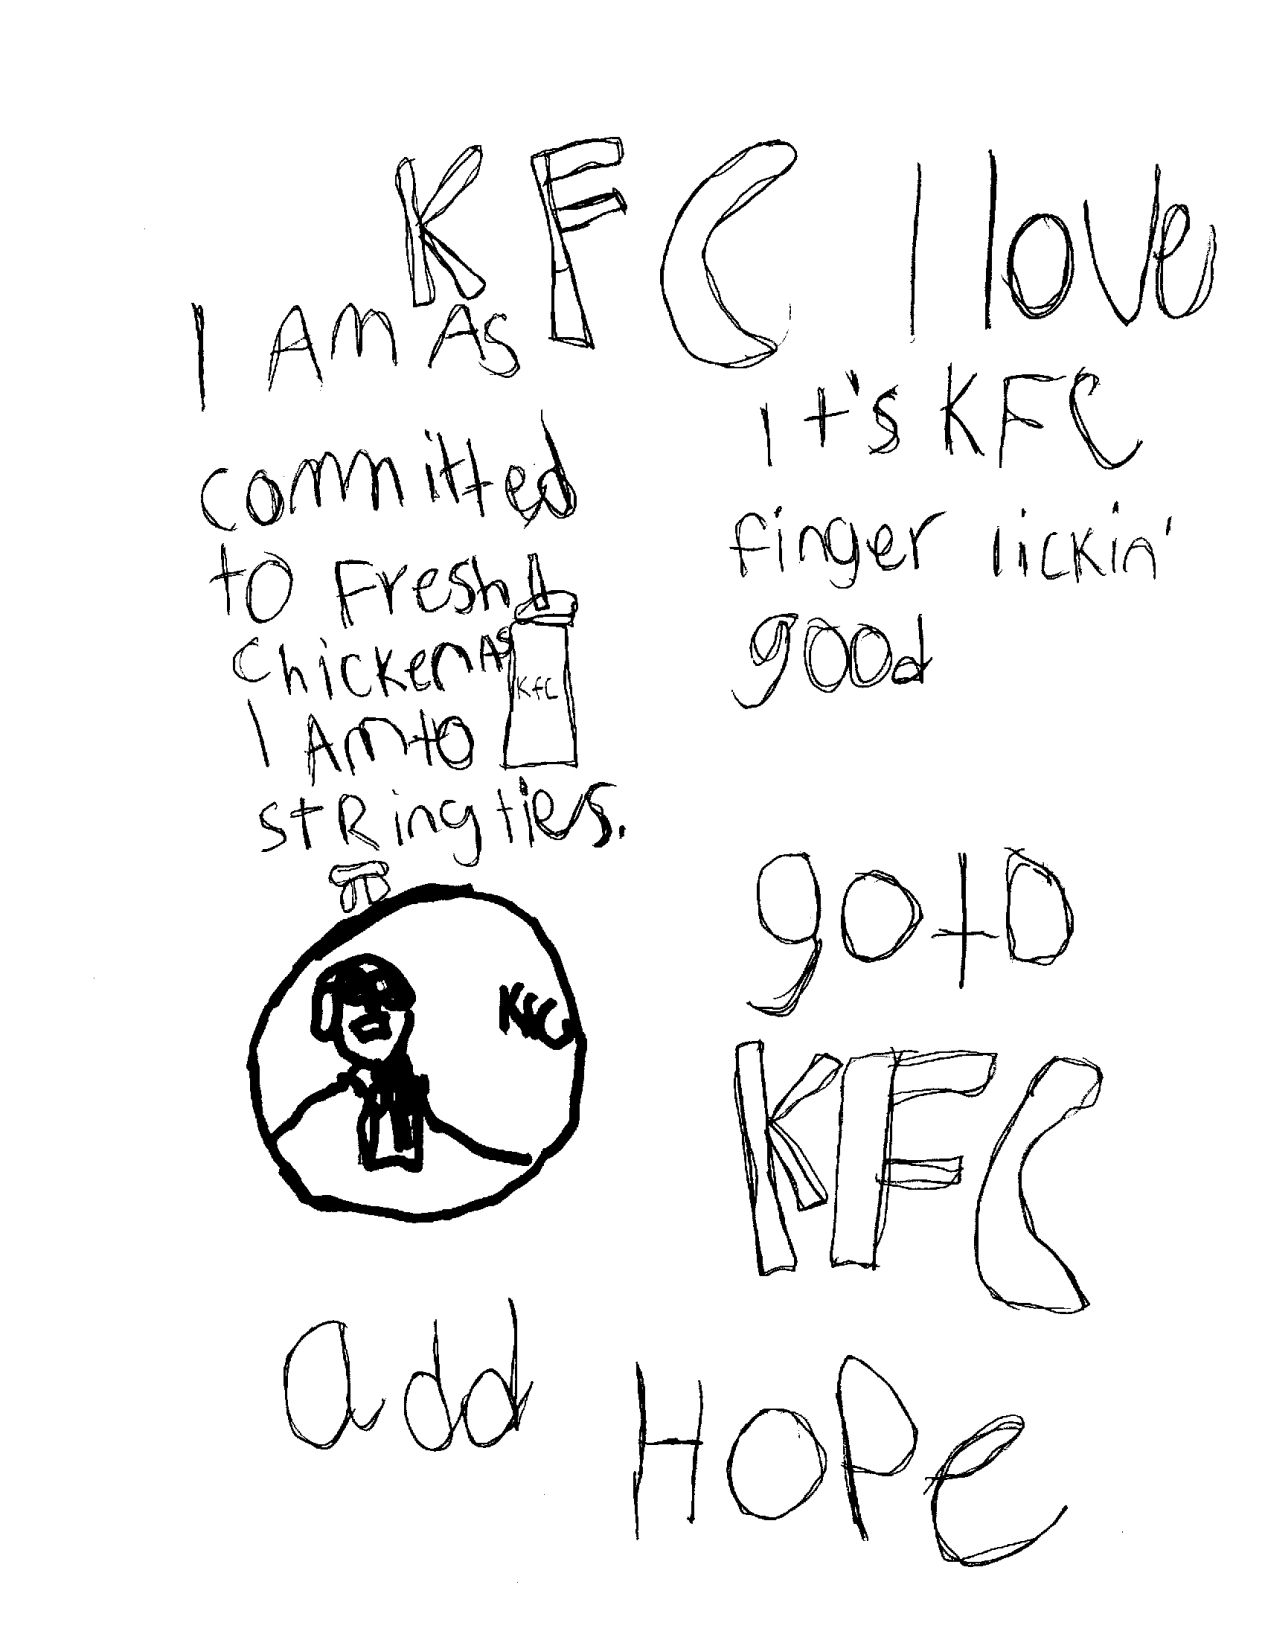 KFC I love
I AM As
committed
to Fresh
chicken As
I AM to
stRing ties.
KFC
it's KFC
finger lickin'
good
KFC
gotD
KFC
add
HOPe